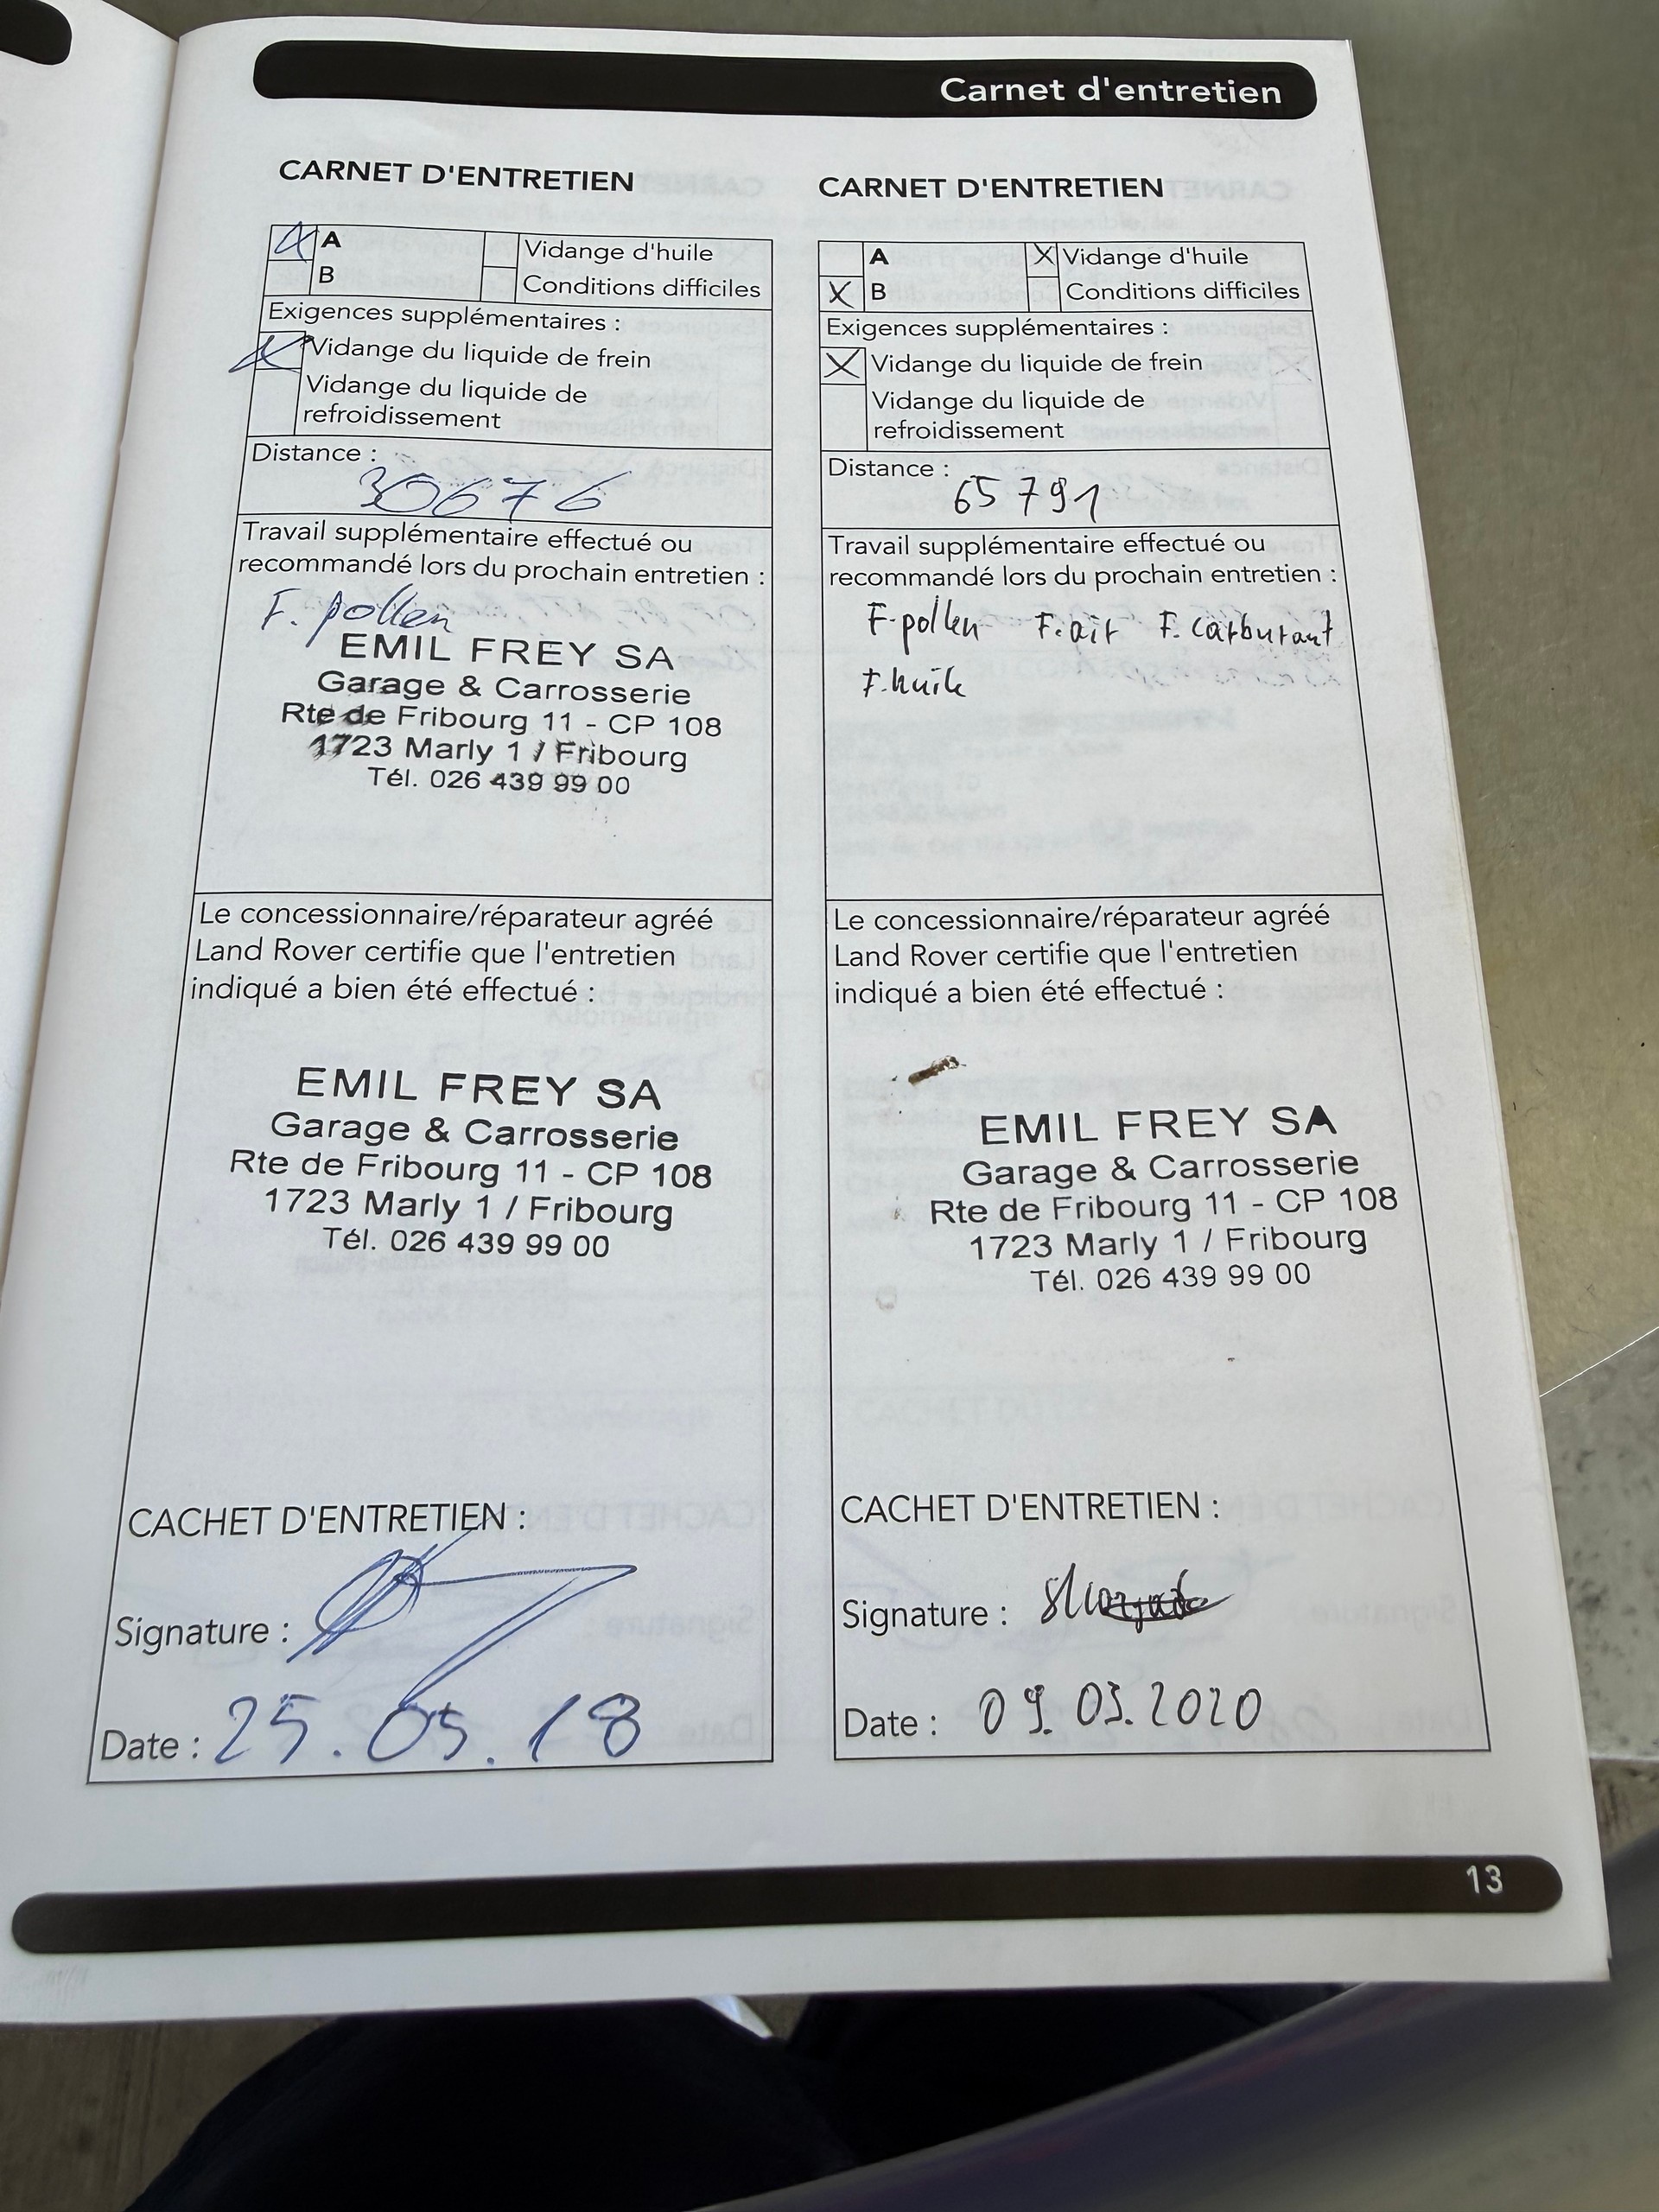 Carnet d'entretien
CARNET D'ENTRETIEN
A
Vidange d'huile
B
Conditions difficiles
Exigences supplémentaires :
Vidange du liquide de frein
Vidange du liquide de
refroidissement
Distance :
30676
Travail supplémentaire effectué ou
recommandé lors du prochain entretien :
F. pollen
EMIL FREY SA
Garage & Carrosserie
Rte de Fribourg 11 - CP 108
1723 Marly 1 / Fribourg
Tél. 026 439 99 00
Le concessionnaire/réparateur agréé
Land Rover certifie que l'entretien
indiqué a bien été effectué :
EMIL FREY SA
Garage & Carrosserie
Rte de Fribourg 11 - CP 108
1723 Marly 1 / Fribourg
Tél. 026 439 99 00
CACHET D'ENTRETIEN :
Signature :
Date : 25.05.18
CARNET D'ENTRETIEN
A
X Vidange d'huile
X B
Conditions difficiles
Exigences supplémentaires :
X Vidange du liquide de frein
Vidange du liquide de
refroidissement
Distance :
65791
Travail supplémentaire effectué ou
recommandé lors du prochain entretien :
F.pollen F.air F.carburant
F.huile
Le concessionnaire/réparateur agréé
Land Rover certifie que l'entretien
indiqué a bien été effectué :
EMIL FREY SA
Garage & Carrosserie
Rte de Fribourg 11 - CP 108
1723 Marly 1 / Fribourg
Tél. 026 439 99 00
CACHET D'ENTRETIEN :
Signature :
Date : 09.03.2020
13